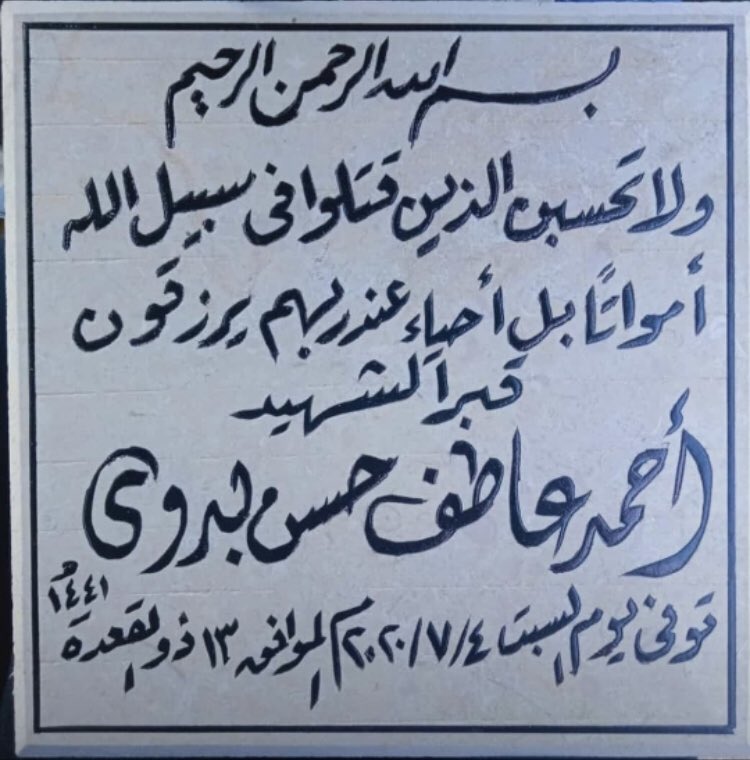 بسم الله الرحمن الرحيم
ولا تحسبن الذين قتلوا فى سبيل الله
أمواتاً بل أحياء عند ربهم يرزقون
قبر الشهيد
أحمد عاطف حسن بدوى
توفى يوم السبت ٢٠٢٠/٧/٤م الموافق ١٣ ذو القعدة ١٤٤١هـ